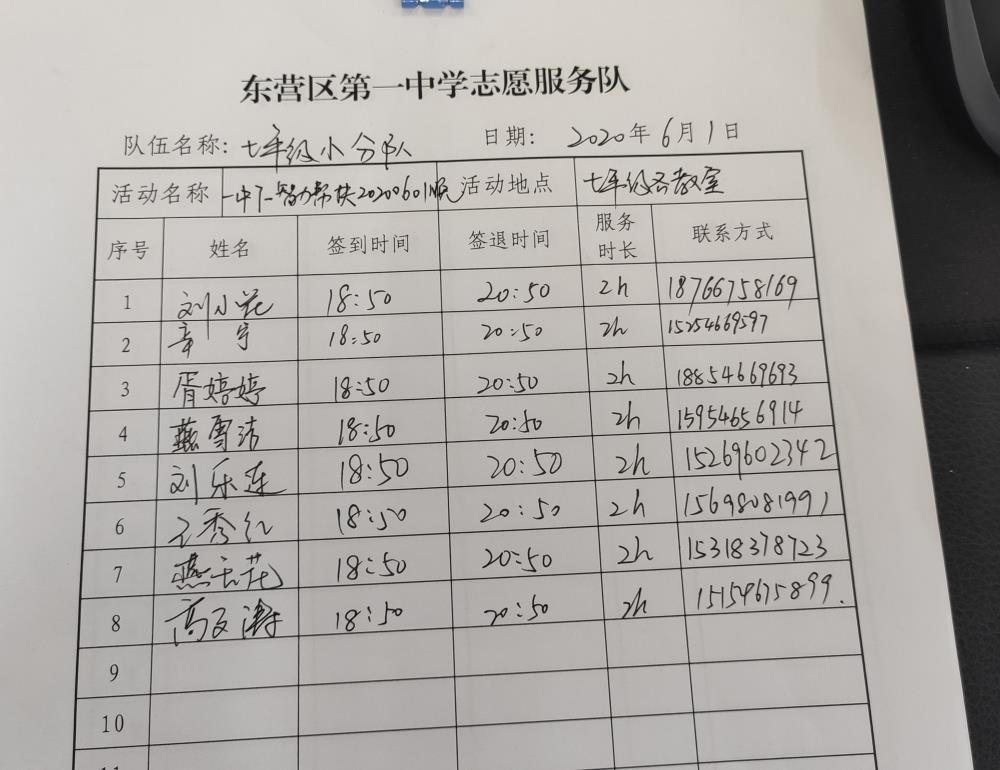 东营区第一中学志愿服务队
队伍名称: 七年级小分队 日期: 2020年6月1日
活动名称 一中7-智力帮扶20200601晚 活动地点 七年级各教室
序号 姓名 签到时间 签退时间 服务时长 联系方式
1 刘小花 18:50 20:50 2h 18766758169
2 章宇 18:50 20:50 2h 15254669597
3 胥婷婷 18:50 20:50 2h 18854669693
4 燕雪洁 18:50 20:50 2h 15954656914
5 刘乐莲 18:50 20:50 2h 15269602342
6 王秀红 18:50 20:50 2h 15698081991
7 燕云花 18:50 20:50 2h 15318378723
8 高 涛 18:50 20:50 2h 15154675899.
9
10